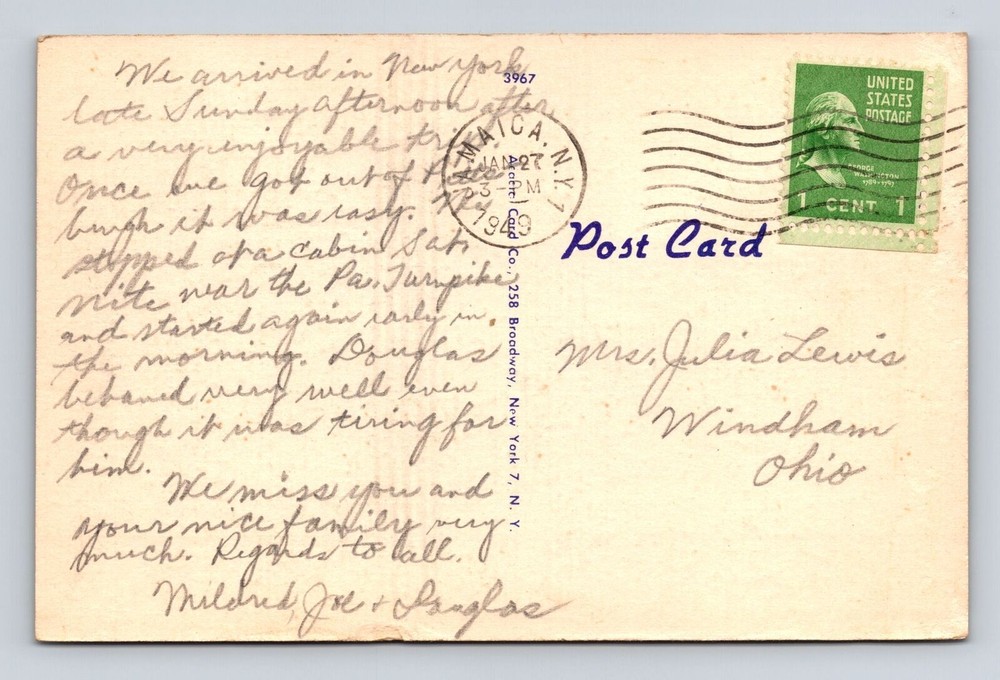 We arrived in New York
late Sunday afternoon after
a very enjoyable trip.
Once we got out of Pitts
burgh it was easy. We
stopped at a cabin Sat.
nite near the Pa. Turnpike
and started again early in
the morning. Douglas
behaved very well even
though it was tiring for
him.
We miss you and
your nice family very
much. Regards to all.
Mildred, Joe + Douglas
3967
Acacia Card Co., 258 Broadway, New York 7, N. Y.
JAMAICA, N.Y. 1
JAN 27
3 - PM
1949
UNITED
STATES
POSTAGE
GEORGE
WASHINGTON
1789-1797
1 CENT 1
Post Card
Mrs. Julia Lewis
Windham
Ohio